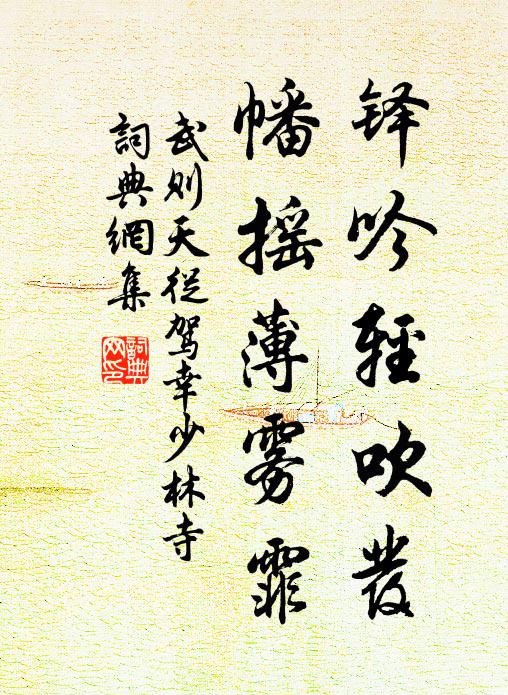 铎吟轻吹發
幡摇薄雾霏
武则天從駕幸少林寺
詞典網集
詞典网印